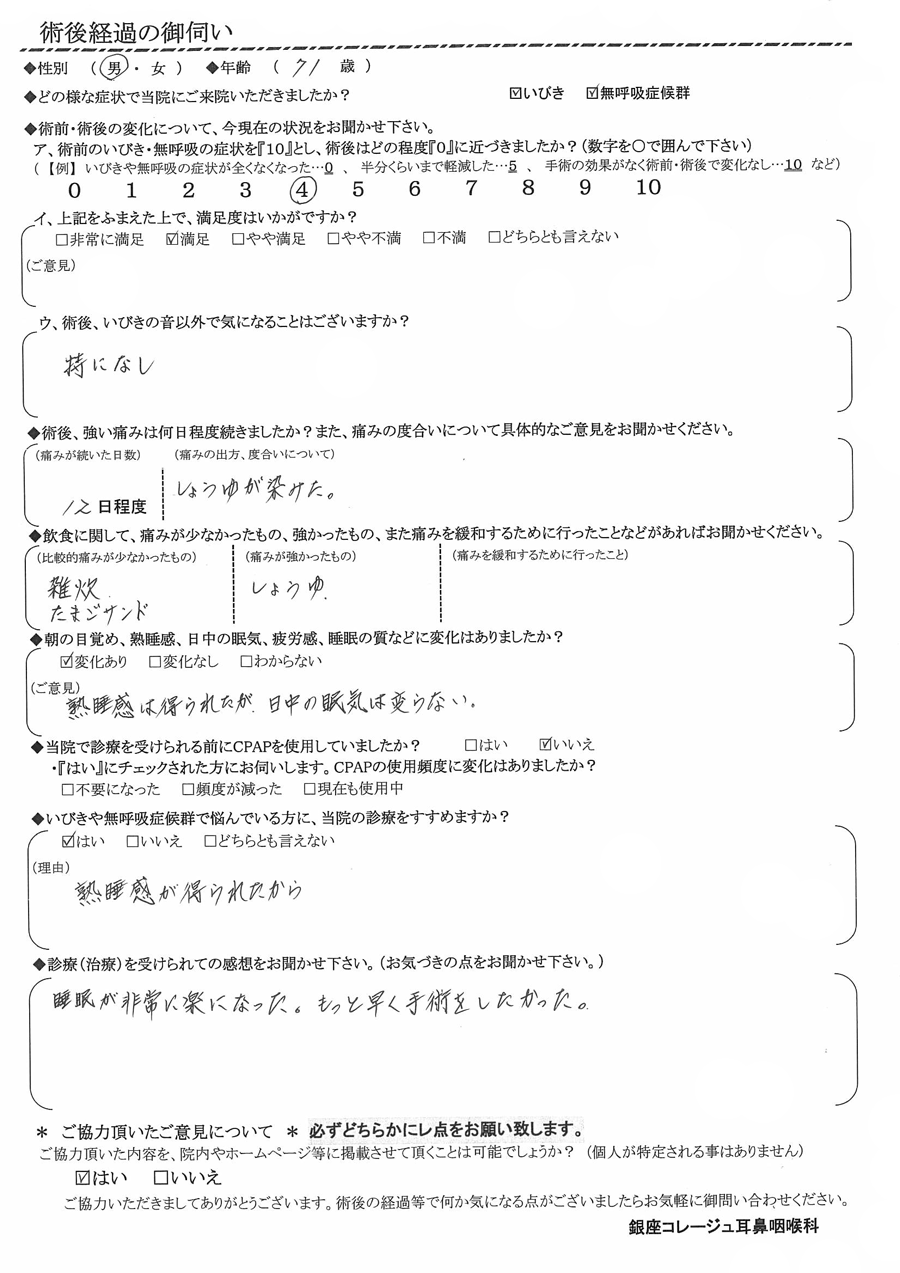 術後経過の御伺い
◆性別 (男・女) ◆年齢 (71歳)
◆どの様な症状で当院にご来院いただきましたか? ☑いびき ☑無呼吸症候群
◆術前・術後の変化について、今現在の状況をお聞かせ下さい。
ア、術前のいびき・無呼吸の症状を『10』とし、術後はどの程度『0』に近づきましたか?(数字を○で囲んで下さい)
(【例】いびきや無呼吸の症状が全くなくなった…0 、 半分くらいまで軽減した…5 、 手術の効果がなく術前・術後で変化なし…10 など)
0 1 2 3 ④ 5 6 7 8 9 10
イ、上記をふまえた上で、満足度はいかがですか?
□非常に満足 ☑満足 □やや満足 □やや不満 □不満 □どちらとも言えない
(ご意見)
ウ、術後、いびきの音以外で気になることはございますか?
特になし
◆術後、強い痛みは何日程度続きましたか?また、痛みの度合いについて具体的なご意見をお聞かせください。
(痛みが続いた日数) (痛みの出方、度合いについて)
12日程度 しょうゆが染みた。
◆飲食に関して、痛みが少なかったもの、強かったもの、また痛みを緩和するために行ったことなどがあればお聞かせください。
(比較的痛みが少なかったもの) (痛みが強かったもの) (痛みを緩和するために行ったこと)
雑炊 しょうゆ
たまごサンド
◆朝の目覚め、熟睡感、日中の眠気、疲労感、睡眠の質などに変化はありましたか?
☑変化あり □変化なし □わからない
(ご意見)
熟睡感は得られたが、日中の眠気は変らない。
◆当院で診療を受けられる前にCPAPを使用していましたか? □はい ☑いいえ
・『はい』にチェックされた方にお伺いします。CPAPの使用頻度に変化はありましたか?
□不要になった □頻度が減った □現在も使用中
◆いびきや無呼吸症候群で悩んでいる方に、当院の診療をすすめますか?
☑はい □いいえ □どちらとも言えない
(理由)
熟睡感が得られたから
◆診療(治療)を受けられての感想をお聞かせ下さい。(お気づきの点をお聞かせ下さい。)
睡眠が非常に楽になった。もっと早く手術をしたかった。
＊ ご協力頂いたご意見について ＊ 必ずどちらかにレ点をお願い致します。
ご協力頂いた内容を、院内やホームページ等に掲載させて頂くことは可能でしょうか? (個人が特定される事はありません)
☑はい □いいえ
ご協力いただきましてありがとうございます。術後の経過等で何か気になる点がございましたらお気軽に御問い合わせください。
銀座コレージュ耳鼻咽喉科